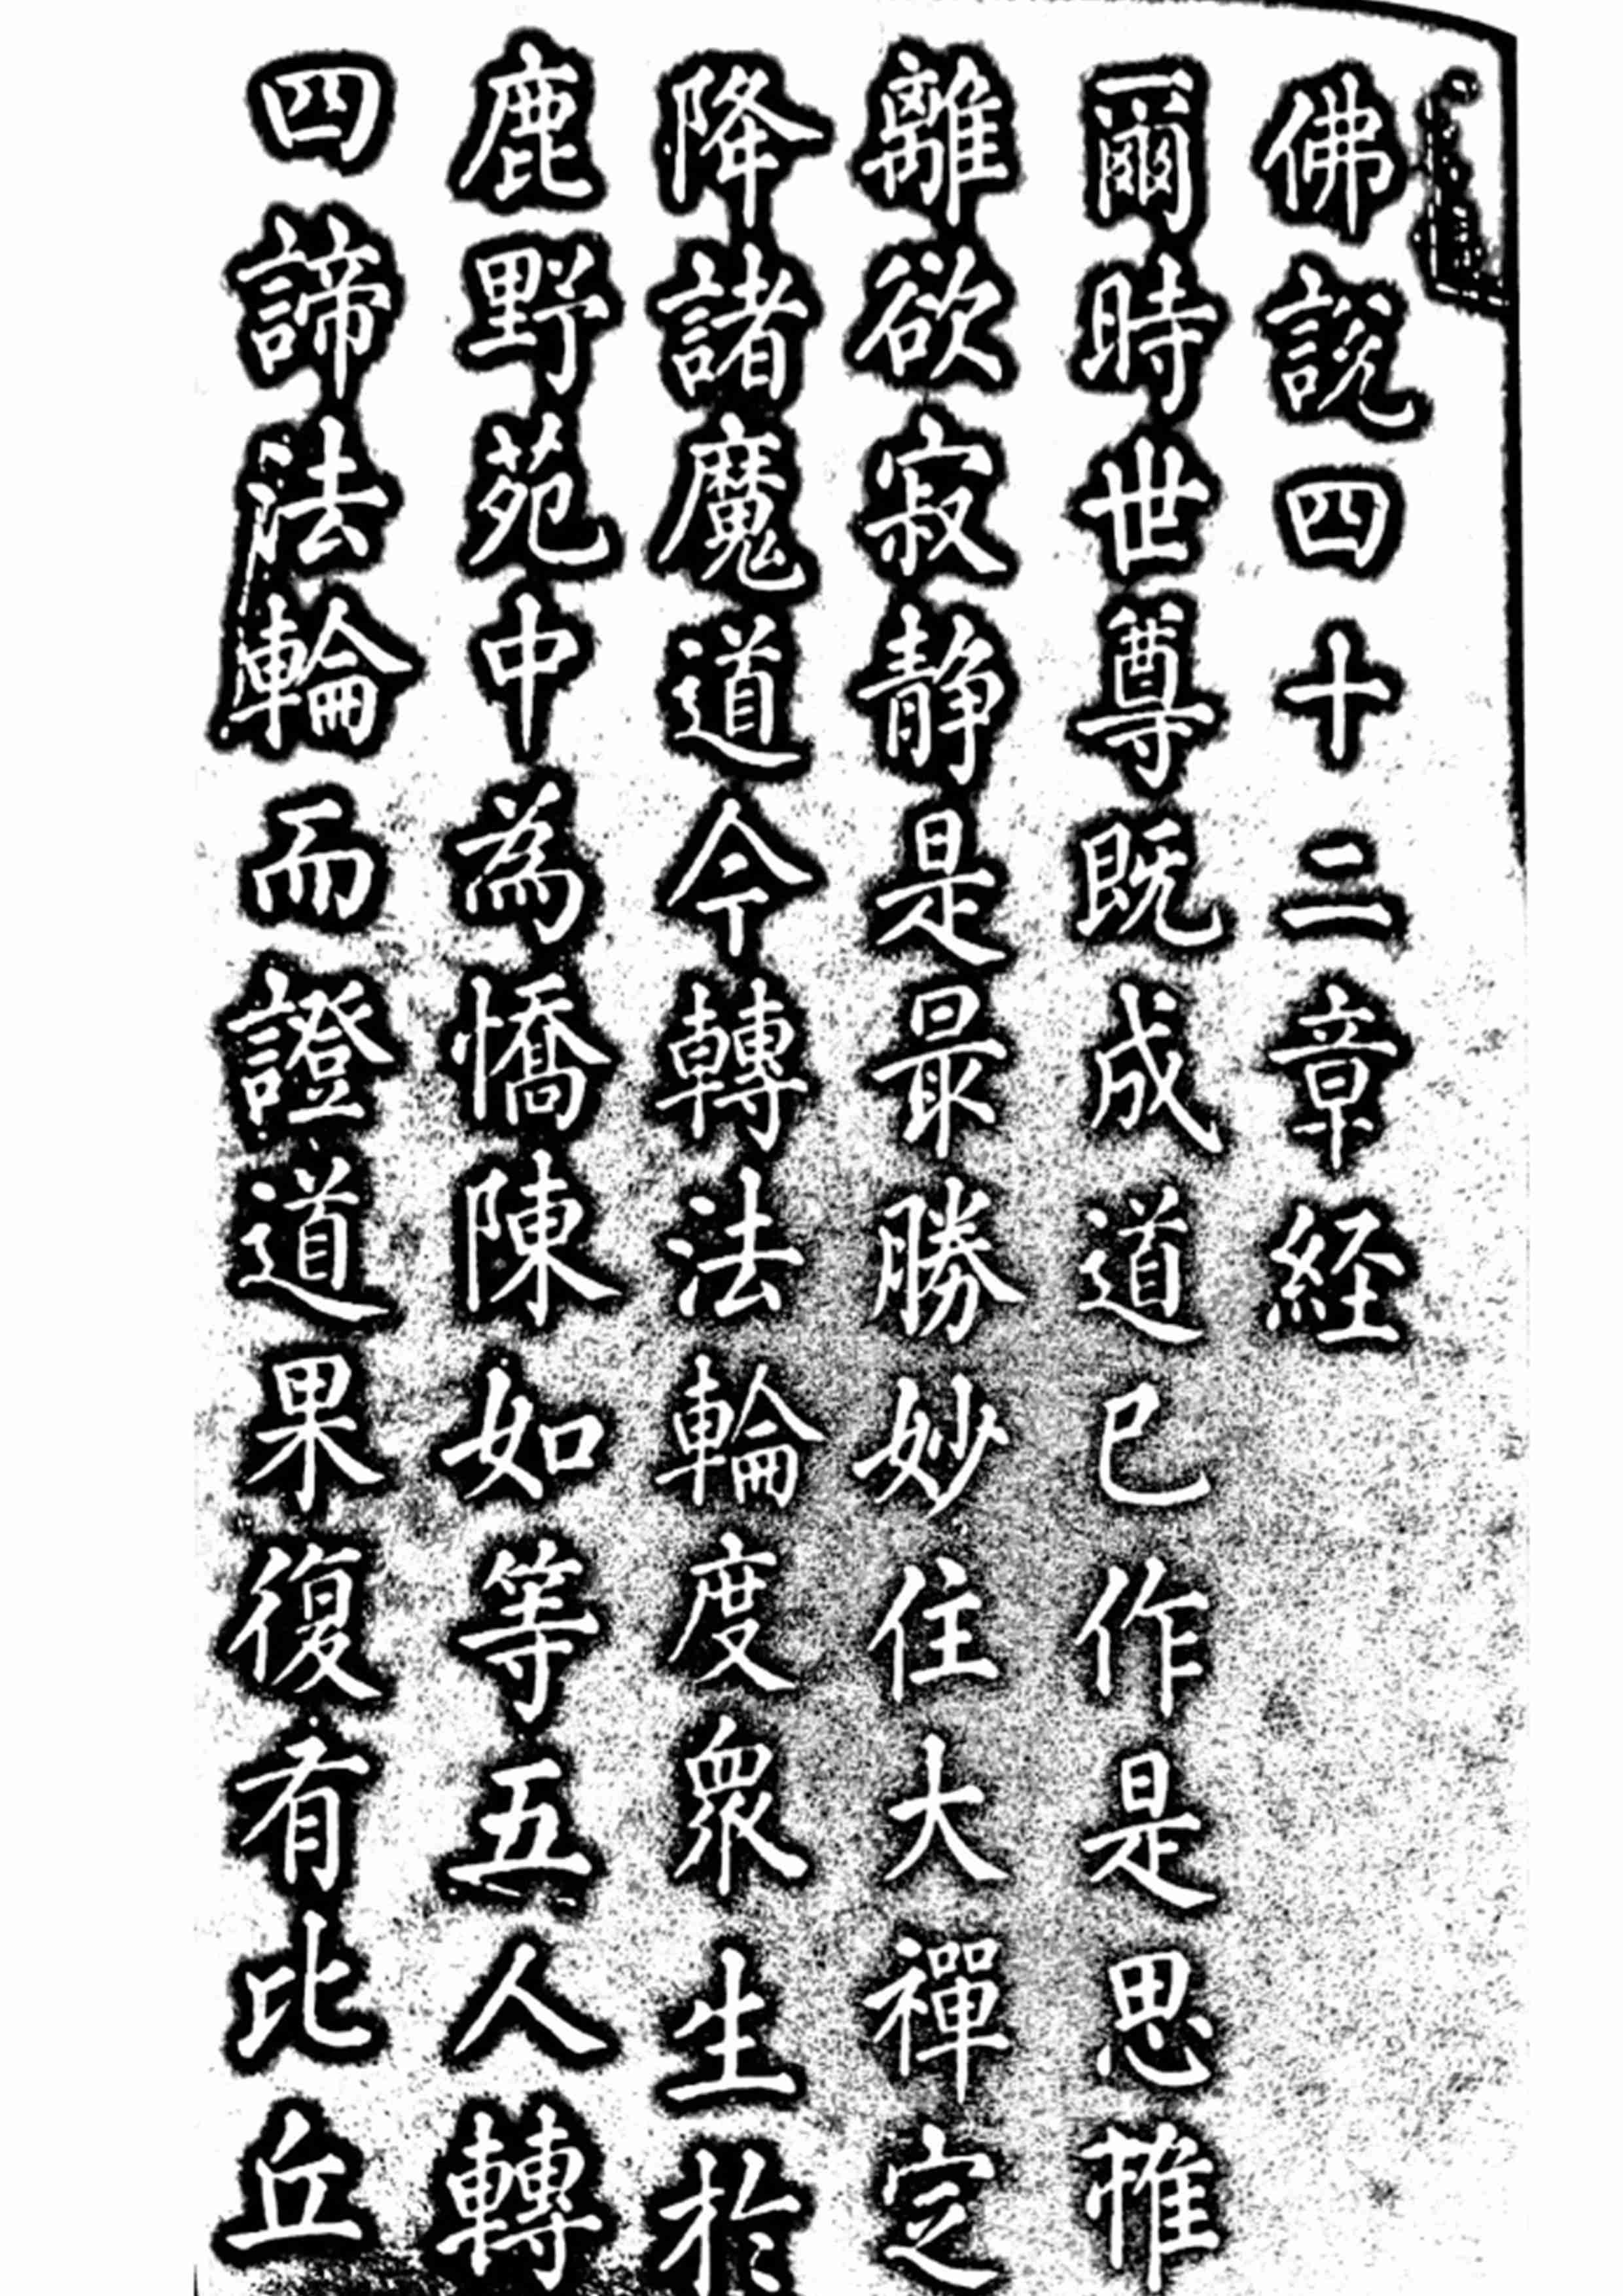 佛說四十二章経
爾時世尊既成道已作是思惟
離欲寂静是最勝妙住大禪定
降諸魔道今轉法輪度眾生於
鹿野苑中為憍陳如等五人轉
四諦法輪而證道果復有比丘